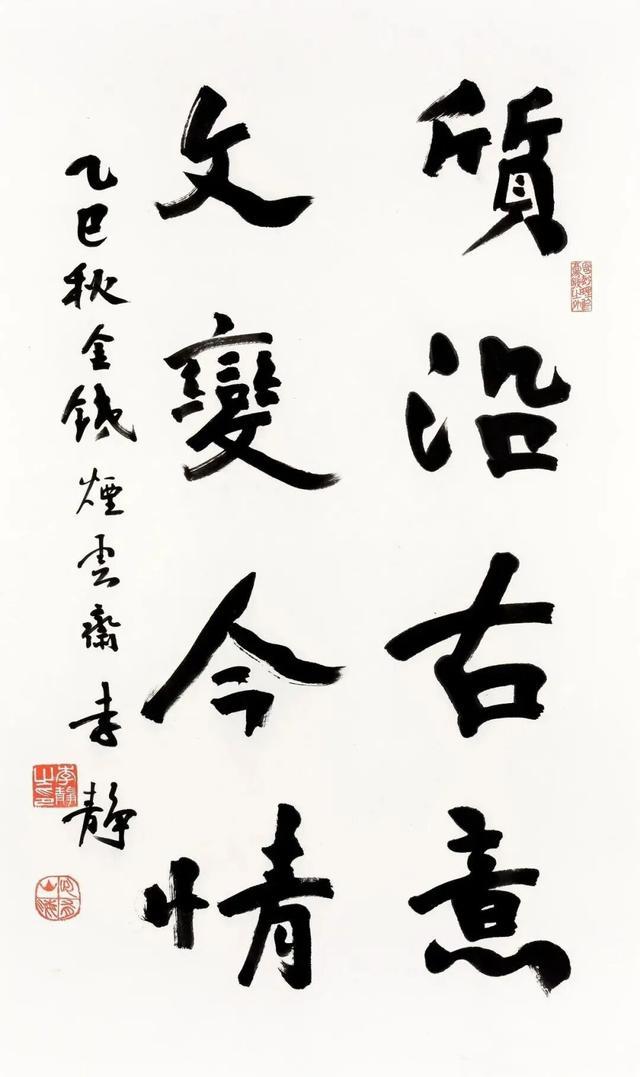 質沿古意
文變今情
乙巳秋金錢煙雲齋李靜
李靜之印